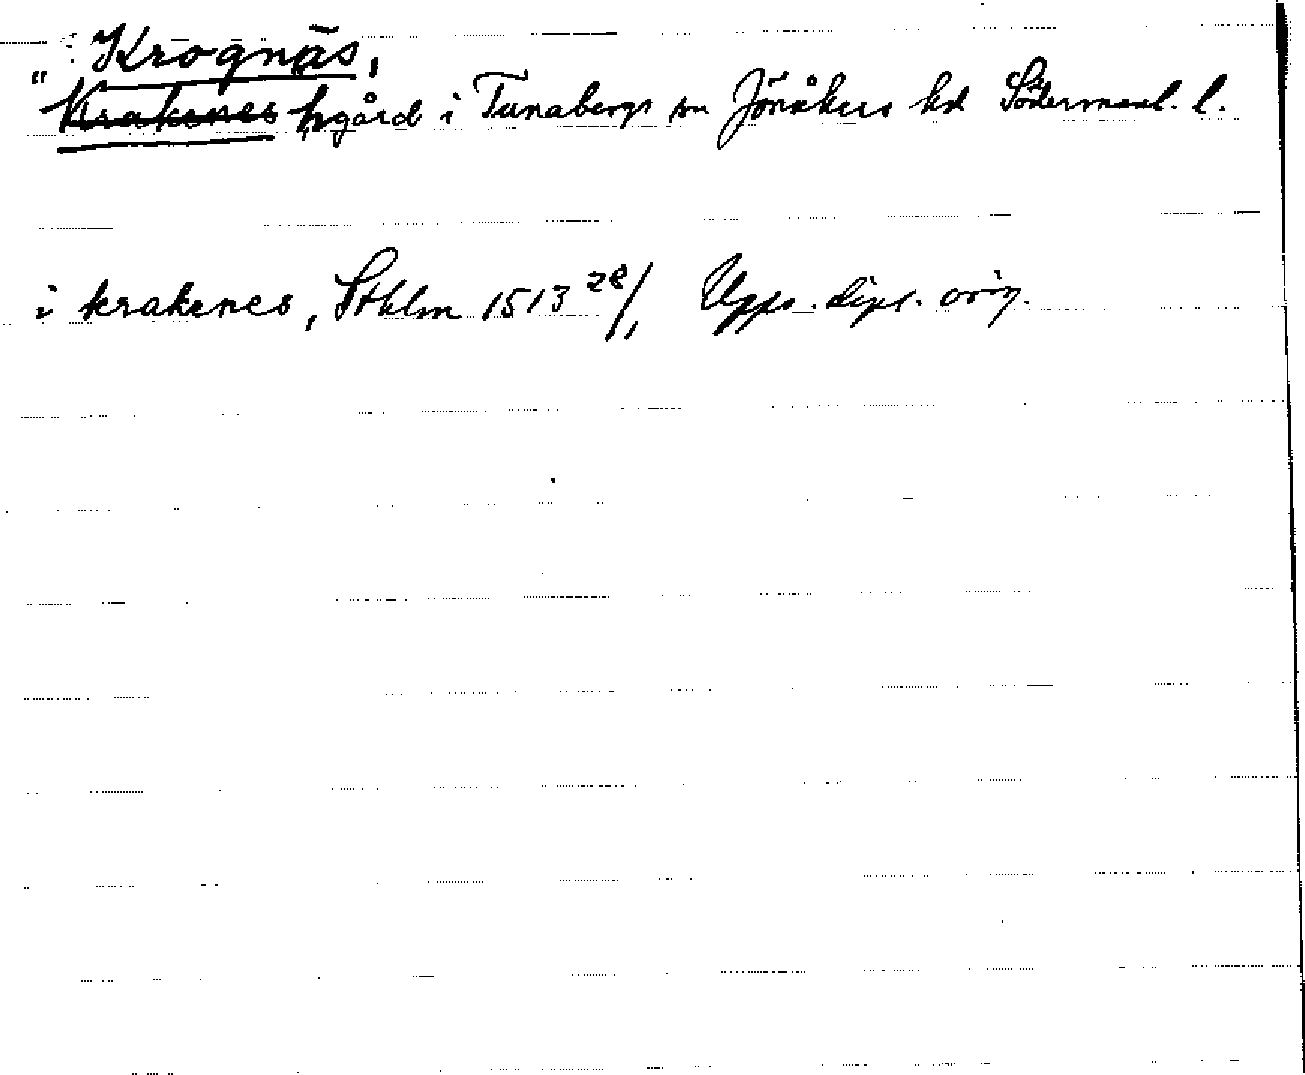 Krognäs,
" Krakenes hgård i Tunabergs sn Jönåkers hd Södermanl. l.
i krakenes, Sthlm 1513 28/1 Upps. dipl. orig.